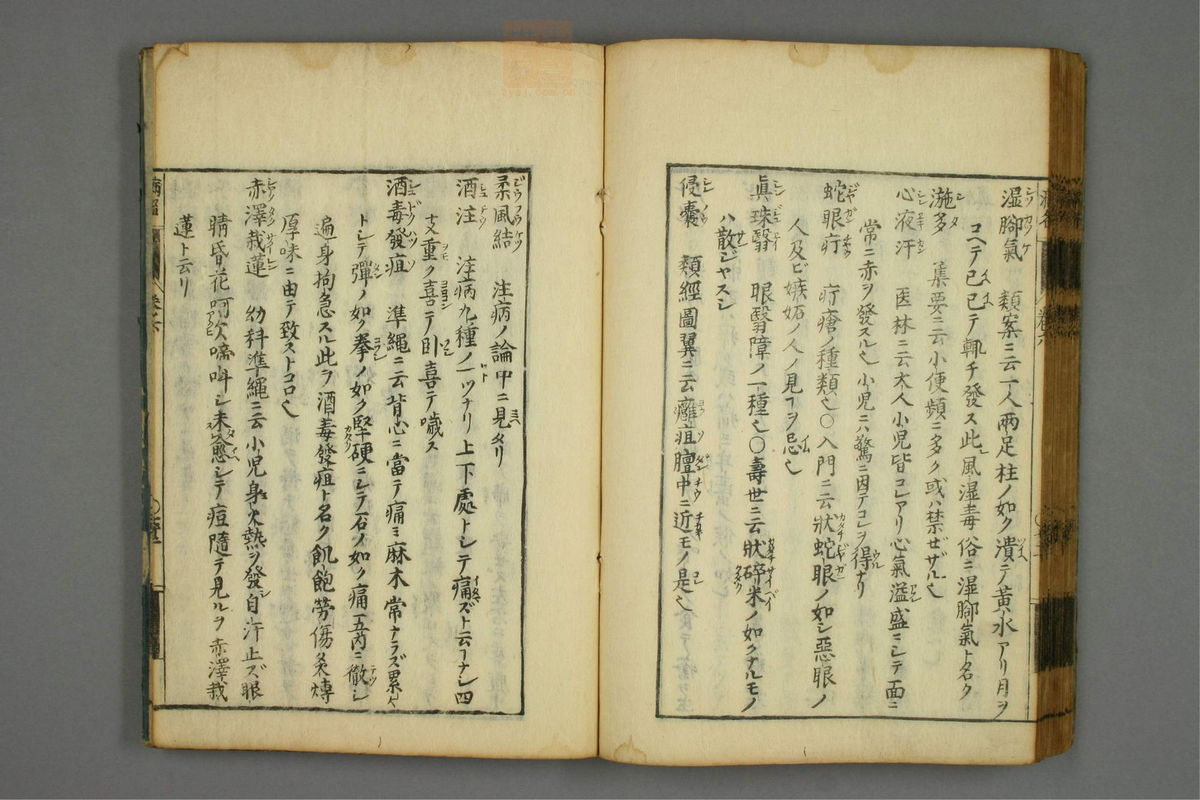 湿腳氣 類案ニ云一人兩足柱ノ如ク潰テ黃水アリ月ヲ
コヘテ已已テ輒チ發ス此風湿毒俗ニ湿腳氣ト名ク
㴰多 集要ニ云小便頻ニ多ク或ハ禁ゼザル也
心液汗 医林ニ云大人小児皆コレアリ心氣溢盛ニシテ面ニ
常ニ赤ヲ發スル也小児ニハ驚ニ因テコレヲ得ナリ
蛇眼疔 疔瘡ノ種類也〇入門ニ云狀蛇眼ノ如シ惡眼ノ
人及ビ嫉妬ノ人ノ見ヿヲ忌也
眞珠翳 眼翳障ノ一種也〇壽世ニ云狀碎米ノ如クナルモノ
ハ散ジヤスシ
侵囊 類經圖翼ニ云癰疽膻中ニ近モノ是也
柔風結 注病ノ論中ニ見タリ
酒注 注病九種ノ一ツナリ上下處トシテ痛ズト云ヿナシ四
支重ク喜テ卧喜テ噦ス
酒毒發疽 準繩ニ云背心ニ當テ痛ミ麻木常ナラズ累々
トシテ彈ノ如ク拳ノ如ク堅硬ニシテ石ノ如ク痛五内ニ徹シ
遍身拘急スル此ヲ酒毒發疽ト名ク飢飽労傷炙煿
厚味ニ由テ致ストコロ也
赤澤栽蓮 幼科準繩ニ云小児身大熱ヲ發自汗止ズ眼
睛昏花呵欠啼呌シ未愈ズシテ痘隨テ見ルヲ赤澤栽
蓮ト云リ
卷六